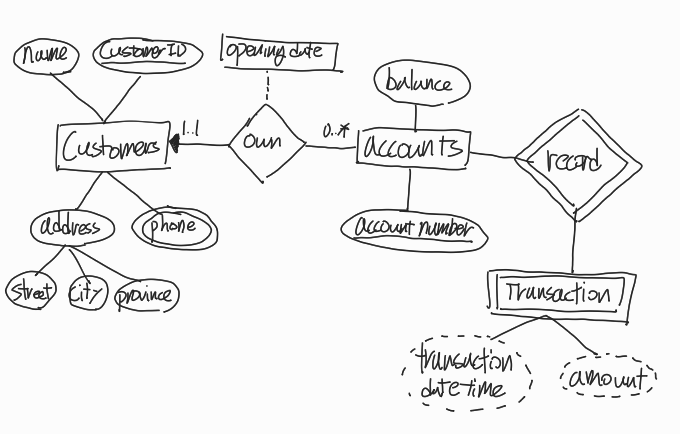 name
CustomerID
opening date
balance
1..1
0..*
Customers
own
accounts
record
address
phone
account number
street
city
province
Transaction
transaction
datetime
amount